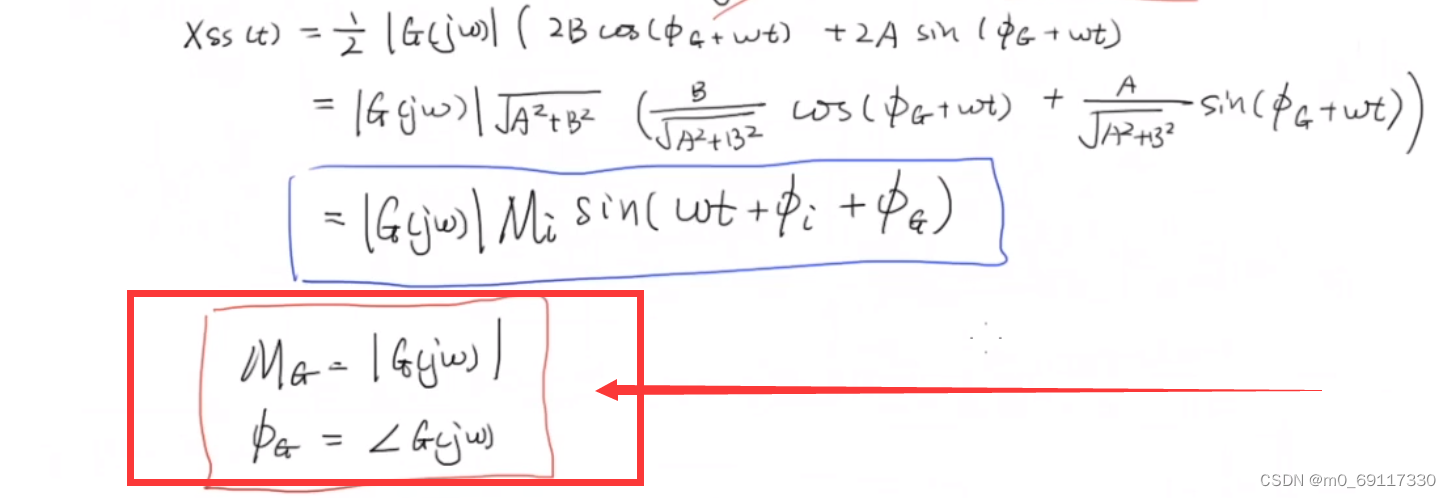 Xss(t) = 1/2 |G(jω)| ( 2B cos(ϕG+ωt) + 2A sin(ϕG+ωt)
= |G(jω)| √A²+B² ( B/√A²+B² cos(ϕG+ωt) + A/√A²+B² sin(ϕG+ωt))
= |G(jω)| Mi sin(ωt+ϕi+ϕG)
MG = |G(jω)|
ϕG = ∠G(jω)
CSDN @m0_69117330